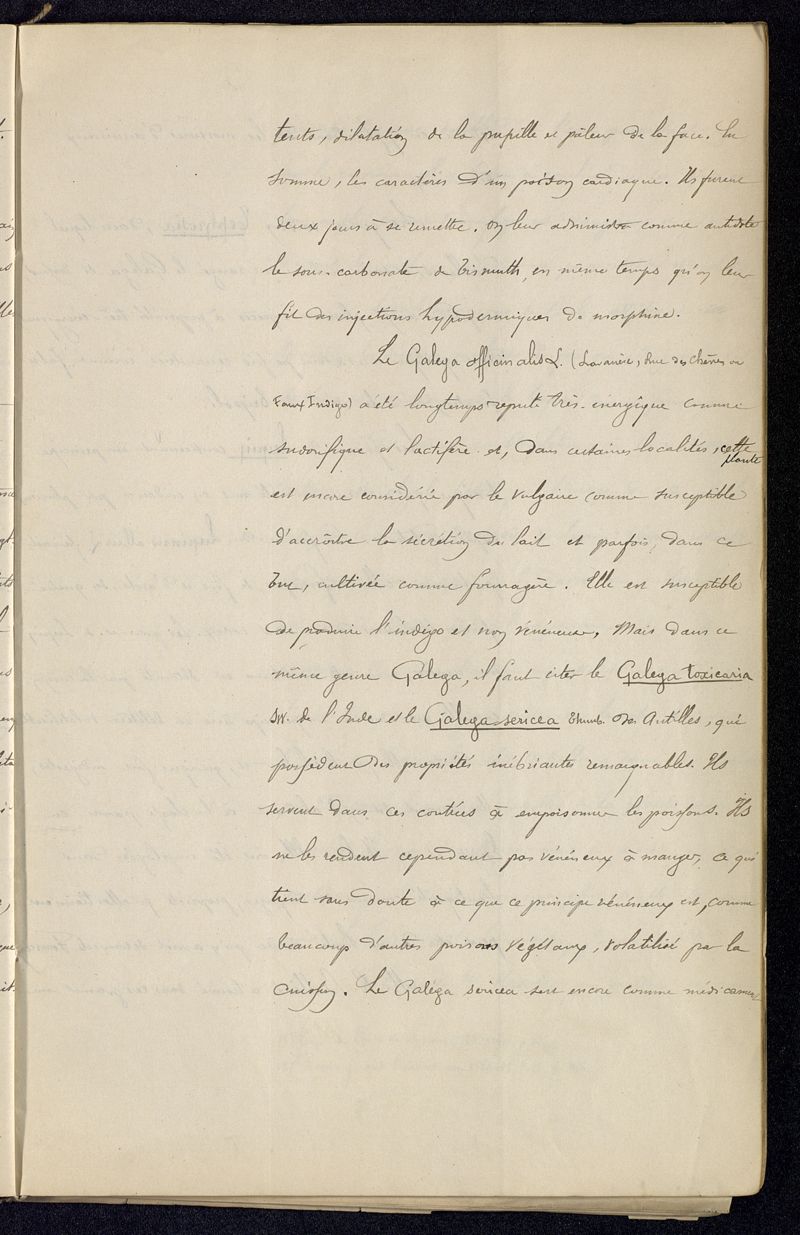 tents, dilatation de la pupille et pâleur de la face. En
somme, les caractères d'un poison cardiaque. Ils furent
deux jours à se remettre. On leur administra comme antidote
le sous-carbonate de bismuth, en même temps qu'on leur
fit des injections hypodermiques de morphine.
Le Galega officinalis L. (Lavanèse, Rue des chèvres ou
Faux Indigo) a été longtemps réputé très-énergique comme
sudorifique et lactifère et, dans certaines localités, cette
plante
est encore considérée par le vulgaire comme susceptible
d'accroître la sécrétion du lait et parfois, dans ce
but, cultivée comme fourragère. Elle est susceptible
de produire l'indigo et non vénéneuse. Mais dans ce
même genre Galega, il faut citer le Galega toxicaria
SW. de l'Inde et le Galega sericea Thumb. des Antilles, qui
possèdent des propriétés inébriantes remarquables. Ils
servent dans ces contrées à empoisonner les poissons. Ils
ne les rendent cependant pas vénéneux à manger, ce qui
tient sans doute à ce que ce principe vénéneux est, comme
beaucoup d'autres poisons végétaux, volatilisé par la
cuisson. Le Galega sericea sert encore comme médicament